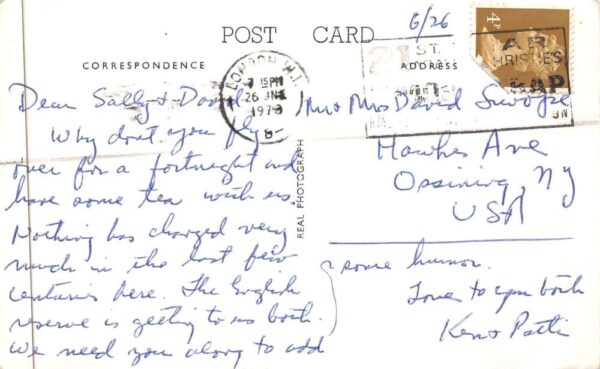 POST CARD
6/26
CORRESPONDENCE
ADDRESS
4P
LONDON W.1
7 15PM
26 JNE
1973
Dear Sally & David
Why don't you fly
over for a fortnight and
have some tea with us.
Nothing has changed very
much in the last few
centuries here. The English
reserve is getting to us both.
We need you along to add
some humor.
Love to you both
Ken & Patti
Mr + Mrs David
Hawkes Ave
Ossining, NY
USA
REAL PHOTOGRAPH